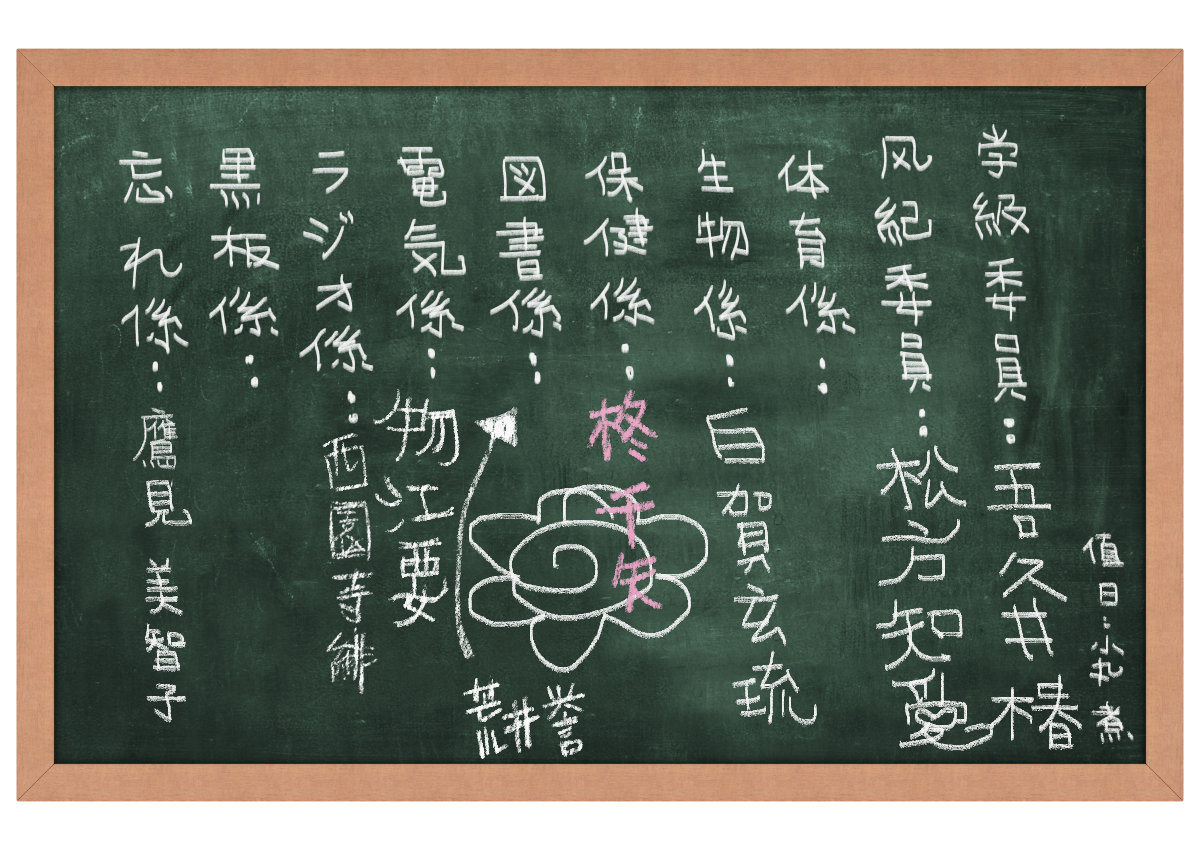 値日：小丸煮
学級委員：吾久井椿
风紀委員：松方知愛
体育係：
生物係：白賀玄琉
保健係：柊千矢
図書係：
荒井誉
電気係：物江要
ラジオ係：西園寺緋
黒板係：
忘れ係：鷹見美智子